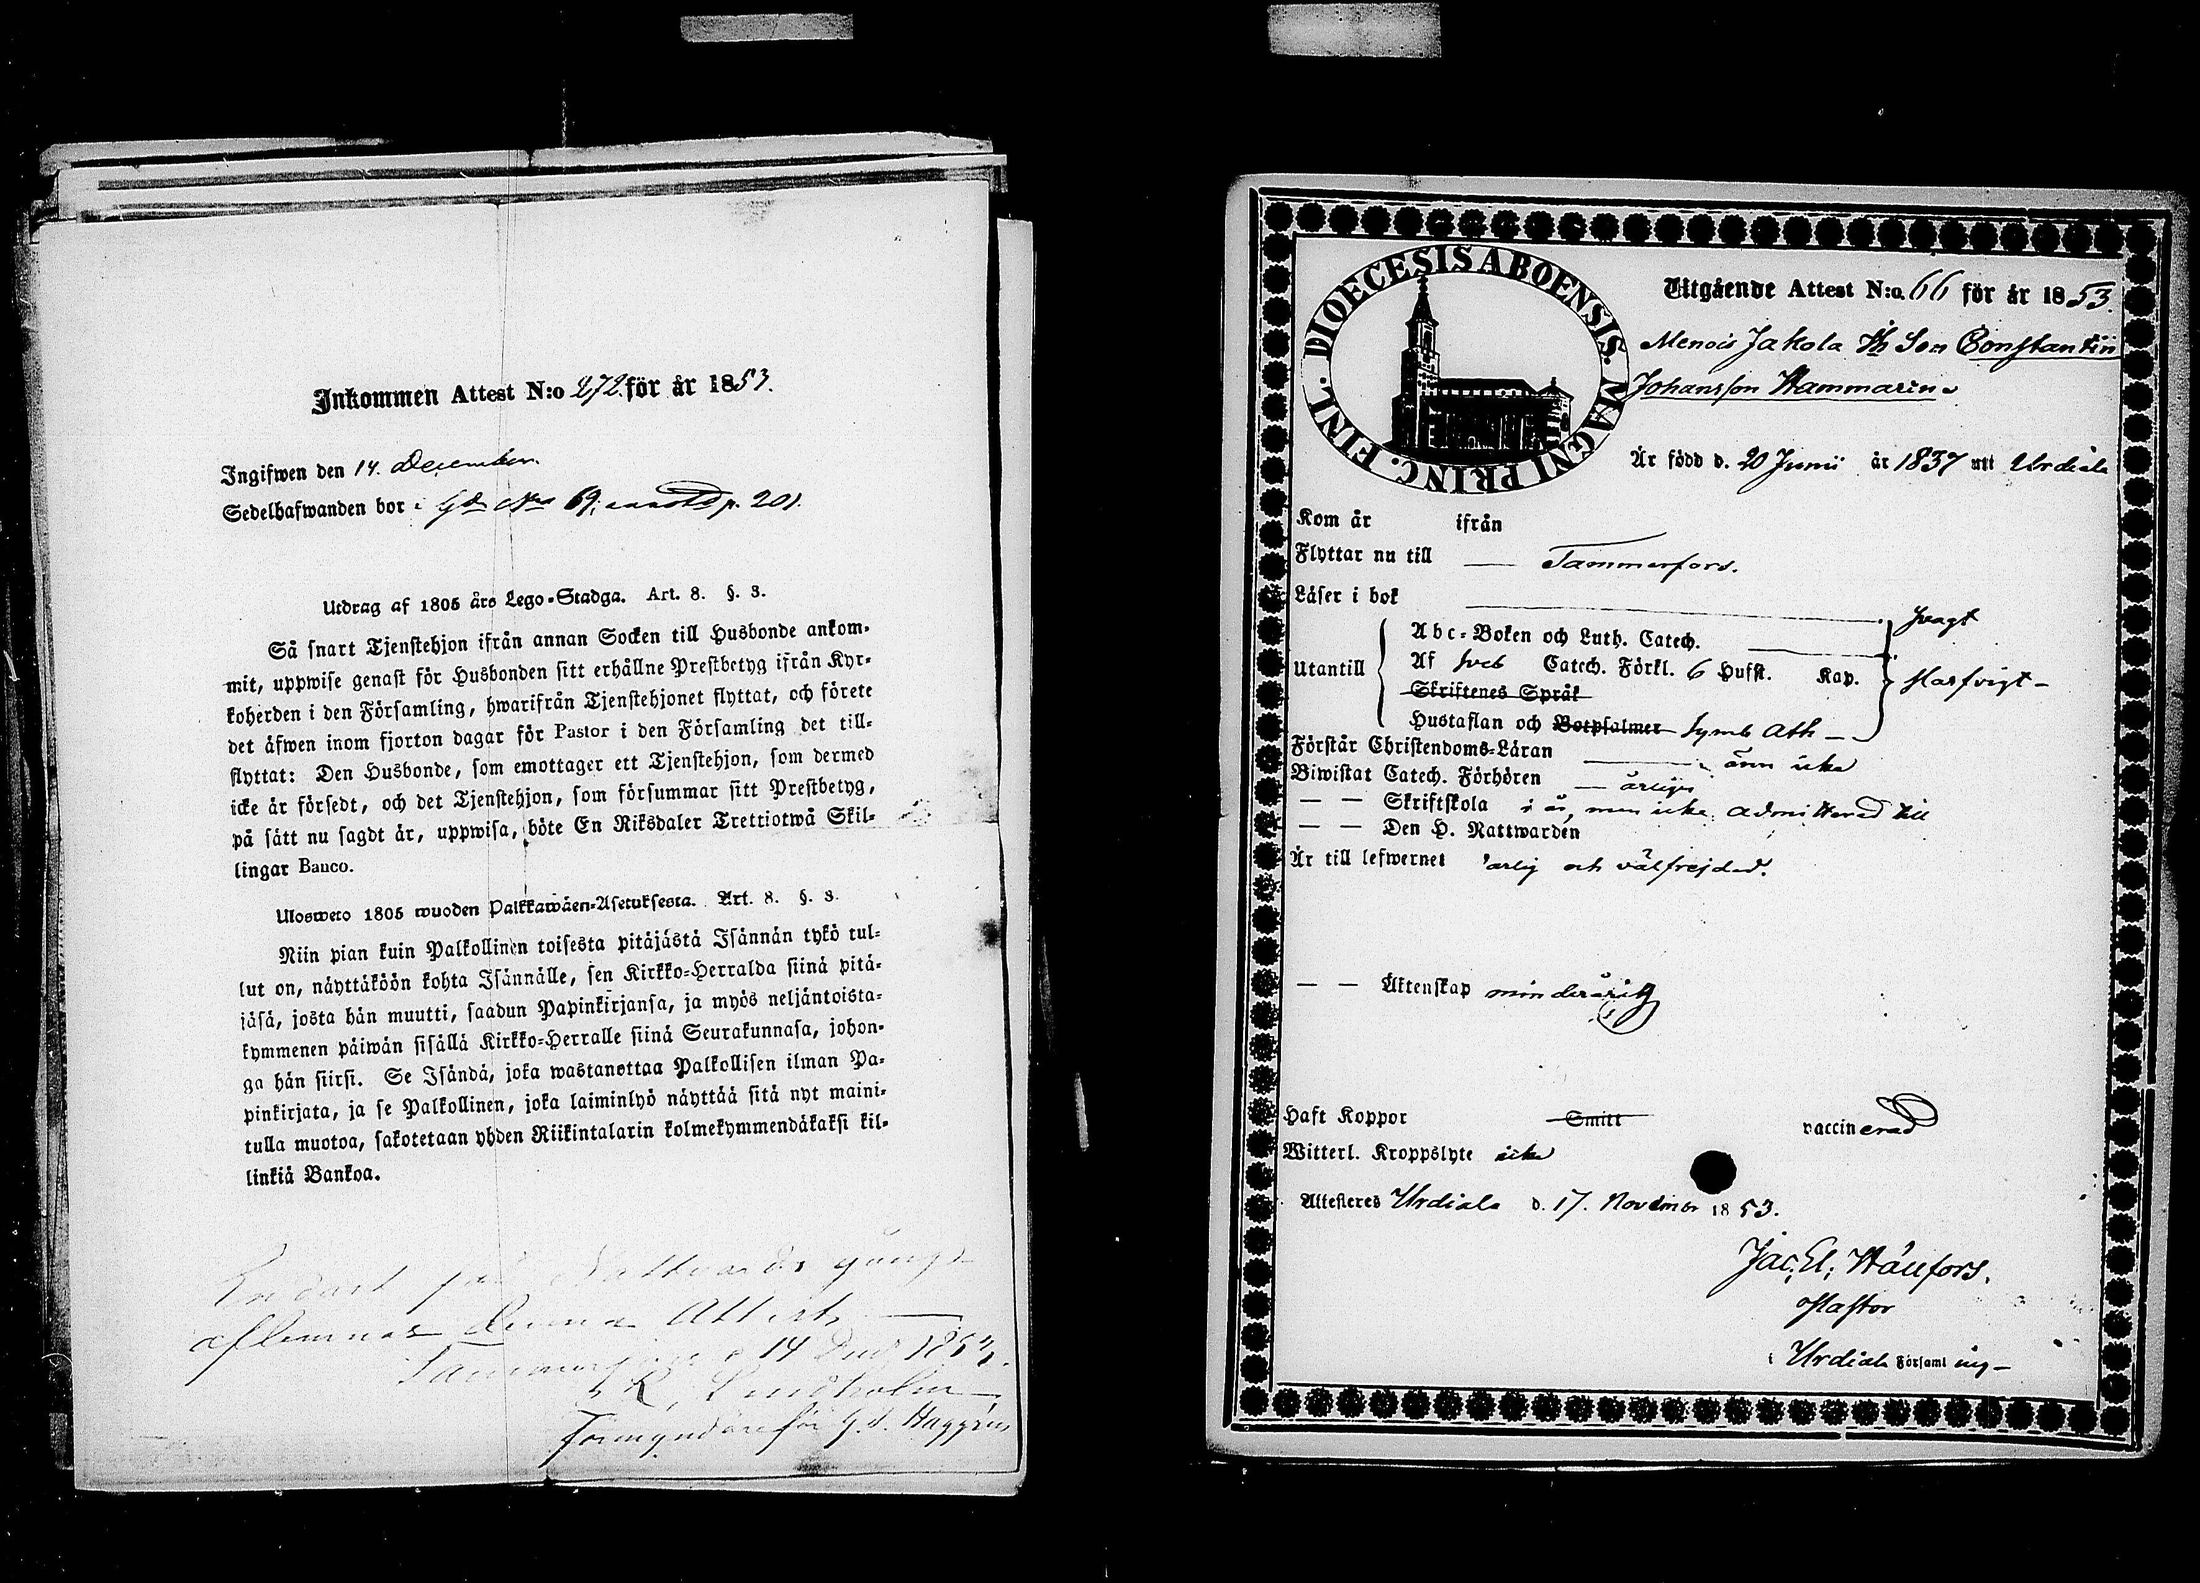 Inkommen Attest N:o 272. för år 1853.
Ingifwen den 14. December.
Sedelhafwanden bor i Gd No 69; p. 201.
Utdrag af 1805 års Lego-Stadga. Art. 8. §. 3.
Så snart Tjenstehjon ifrån annan Socken till Husbonde ankom-
mit, uppwise genast för Husbonden sitt erhållne Prestbetyg ifrån Kyr-
koherden i den Församling, hwarifrån Tjenstehjonet flyttat, och förete
det äfwen inom fjorton dagar för Pastor i den Församling det till-
flyttat: Den Husbonde, som emottager ett Tjenstehjon, som dermed
icke är försedt, och det Tjenstehjon, som försummar sitt Prestbetyg,
på sätt nu sagdt är, uppwisa, böte En Riksdaler Trettiotwå Skil-
lingar Banco.
Ulosweto 1805 wuoden Palkkawäen-Asetuksesta. Art. 8. §. 3.
Niin pian kuin Palkollinen toisesta pitäjästä Isännän tykö tul-
lut on, näyttäköön kohta Isännälle, sen Kirkko-Herralda siinä pitä-
jäsä, josta hän muutti, saadun Papinkirjansa, ja myös neljäntoista-
kymmenen päiwän sisällä Kirkko-Herralle siinä Seurakunnasa, johon-
ga hän siirsi. Se Isändä, joka wastanottaa Palkollisen ilman Pa-
pinkirjata, ja se Palkollinen, joka laiminlyö näyttää sitä nyt maini-
tulla muotoa, sakotetaan yhden Riikintalarin kolmekymmendäkaksi kil-
linkiä Bankoa.
Endast på Nattvards gång
aflemnas denna Attest
Tammerfors d 14 Dec 1853.
K. Lindholm
Förmyndare för G. A. Haggrén
DIOECESIS ABOENSIS. MAGNI PRINC. FINL.
Utgående Attest N:o. 66 för år 1853.
Menois Jakola Th Son Constantin
Johansson Hammarin
Är född d. 20 Junii år 1837 uti Urdiala
Kom år ifrån
Flyttar nu till — Tammerfors.
Läser i bok svagt
Utantill Abc-Boken och Luth. Catech.
Af sveb Catech. Förkl. 6 Hufst. Kap. Harfvigt
Skriftenes Språk
Hustaflan och Botpsalmer Symb Ath —
Förstår Christendoms-Läran änn icke
Biwistat Catech. Förhören — årligen
— — Skriftskola i år, men icke admitterad till
— — Den H. Nattwarden
Är till lefwernet ärlig och välfrejdad.
— — Äktenskap minderårig
Haft Koppor Smitt vaccinerad
Witterl. Kroppslyte icke
Attesteres Urdiala d. 17. November 1853.
Jac. El. Hällfors.
Pastor
i Urdiala Församling —